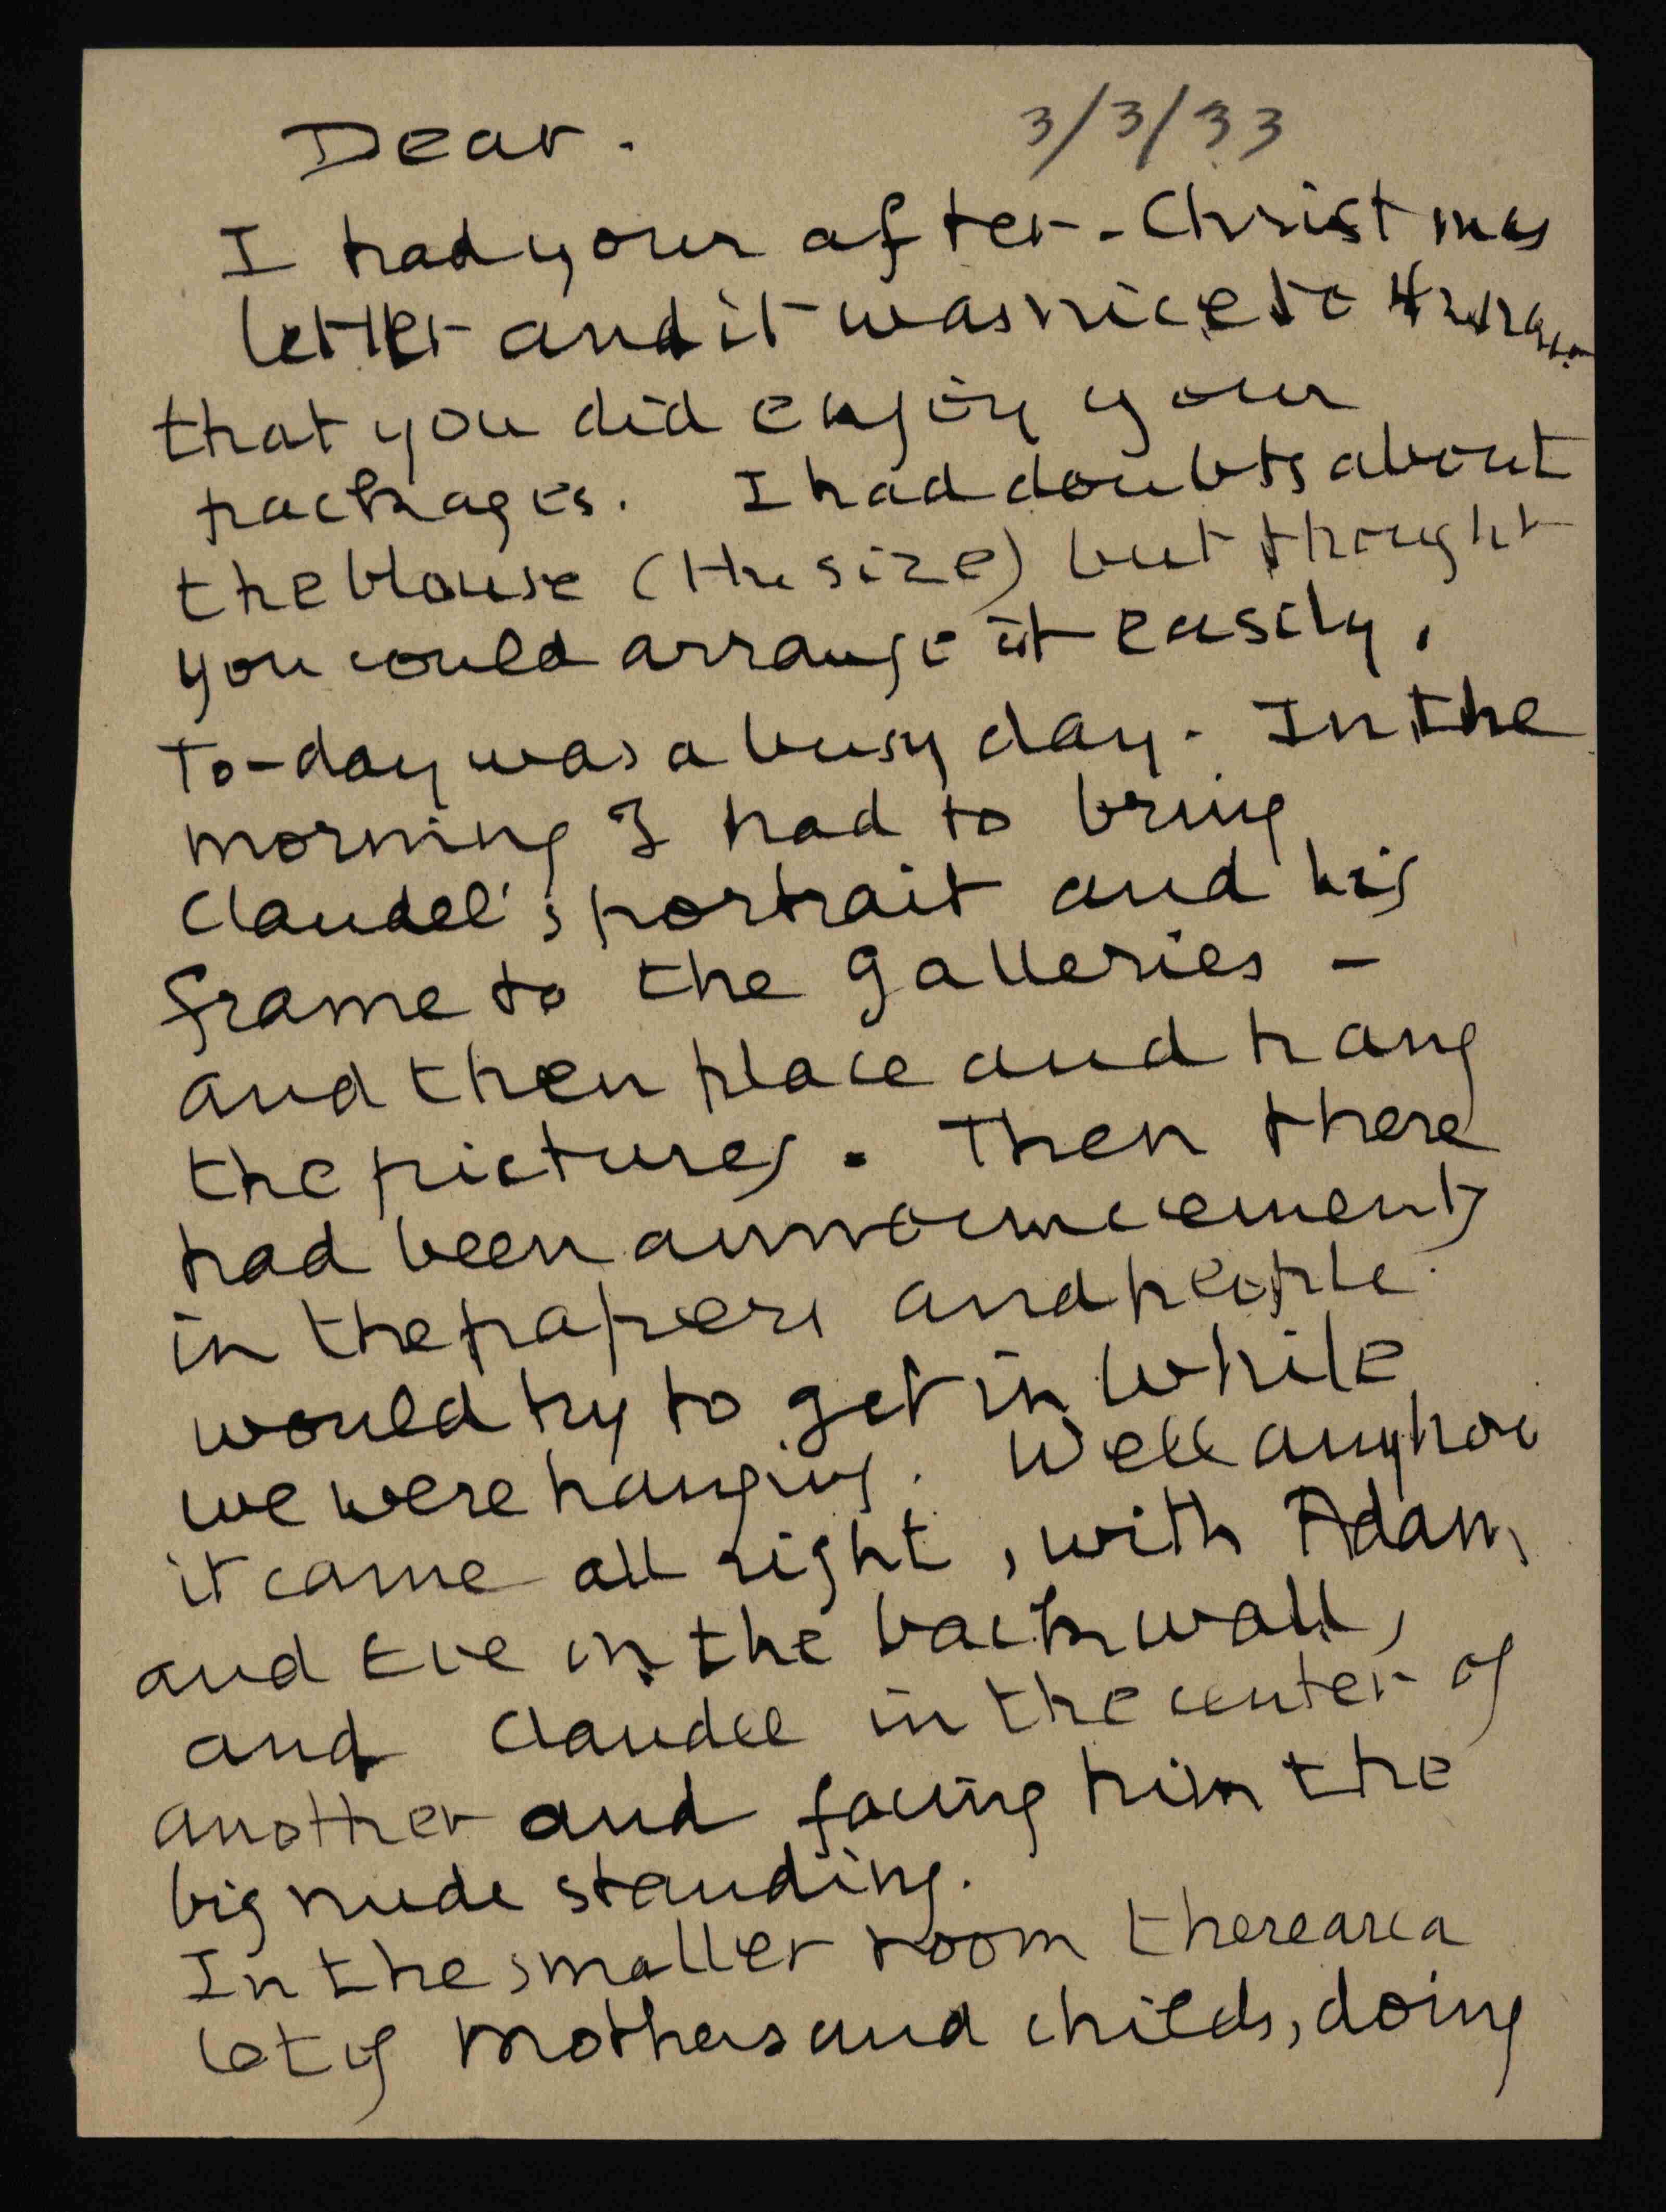 Dear. 3/3/33
I had your after-Christmas
letter and it was nice to know
that you did enjoy your
packages. I had doubts about
the blouse (the size) but thought
you could arrange it easily.
To-day was a busy day. In the
morning I had to bring
Claudel's portrait and his
frame to the galleries -
and then place and hang
the pictures. Then there
had been announcements
in the papers and people
would try to get in while
we were hanging. Well anyhow
it came all right, with Adam
and Eve in the back wall,
and Claudel in the center of
another and facing him the
big nude standing.
In the smaller room there are a
lot of mothers and childs, doing